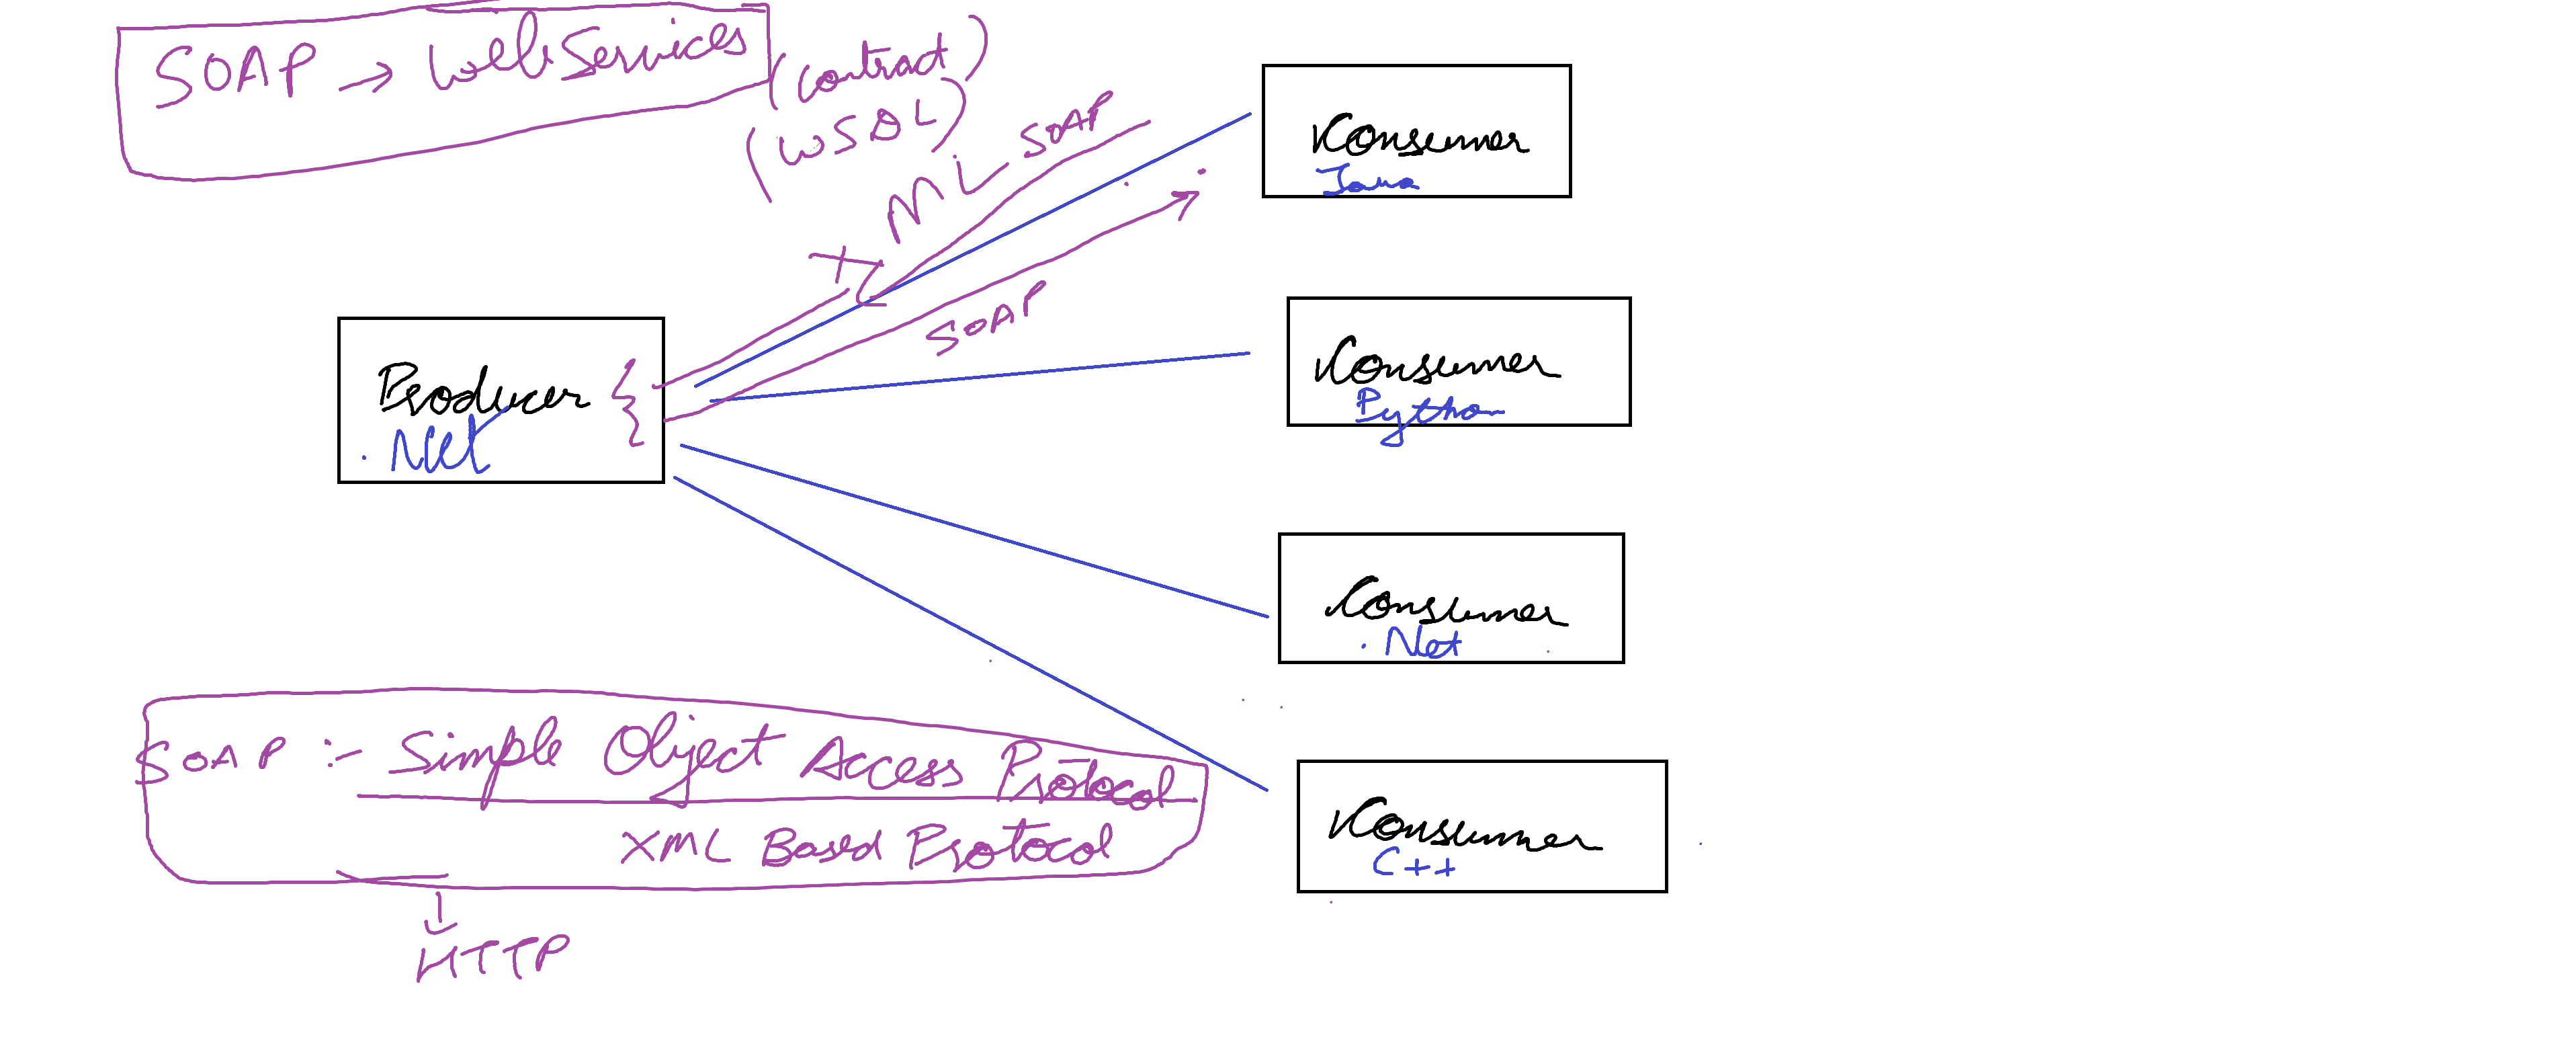 SOAP → WebServices
(Contract)
(WSDL)
XML SOAP
SOAP
Producer {
.Net
Consumer
Java
Consumer
Python
Consumer
.Net
Consumer
C++
SOAP :- Simple Object Access Protocol
XML Based Protocol
HTTP